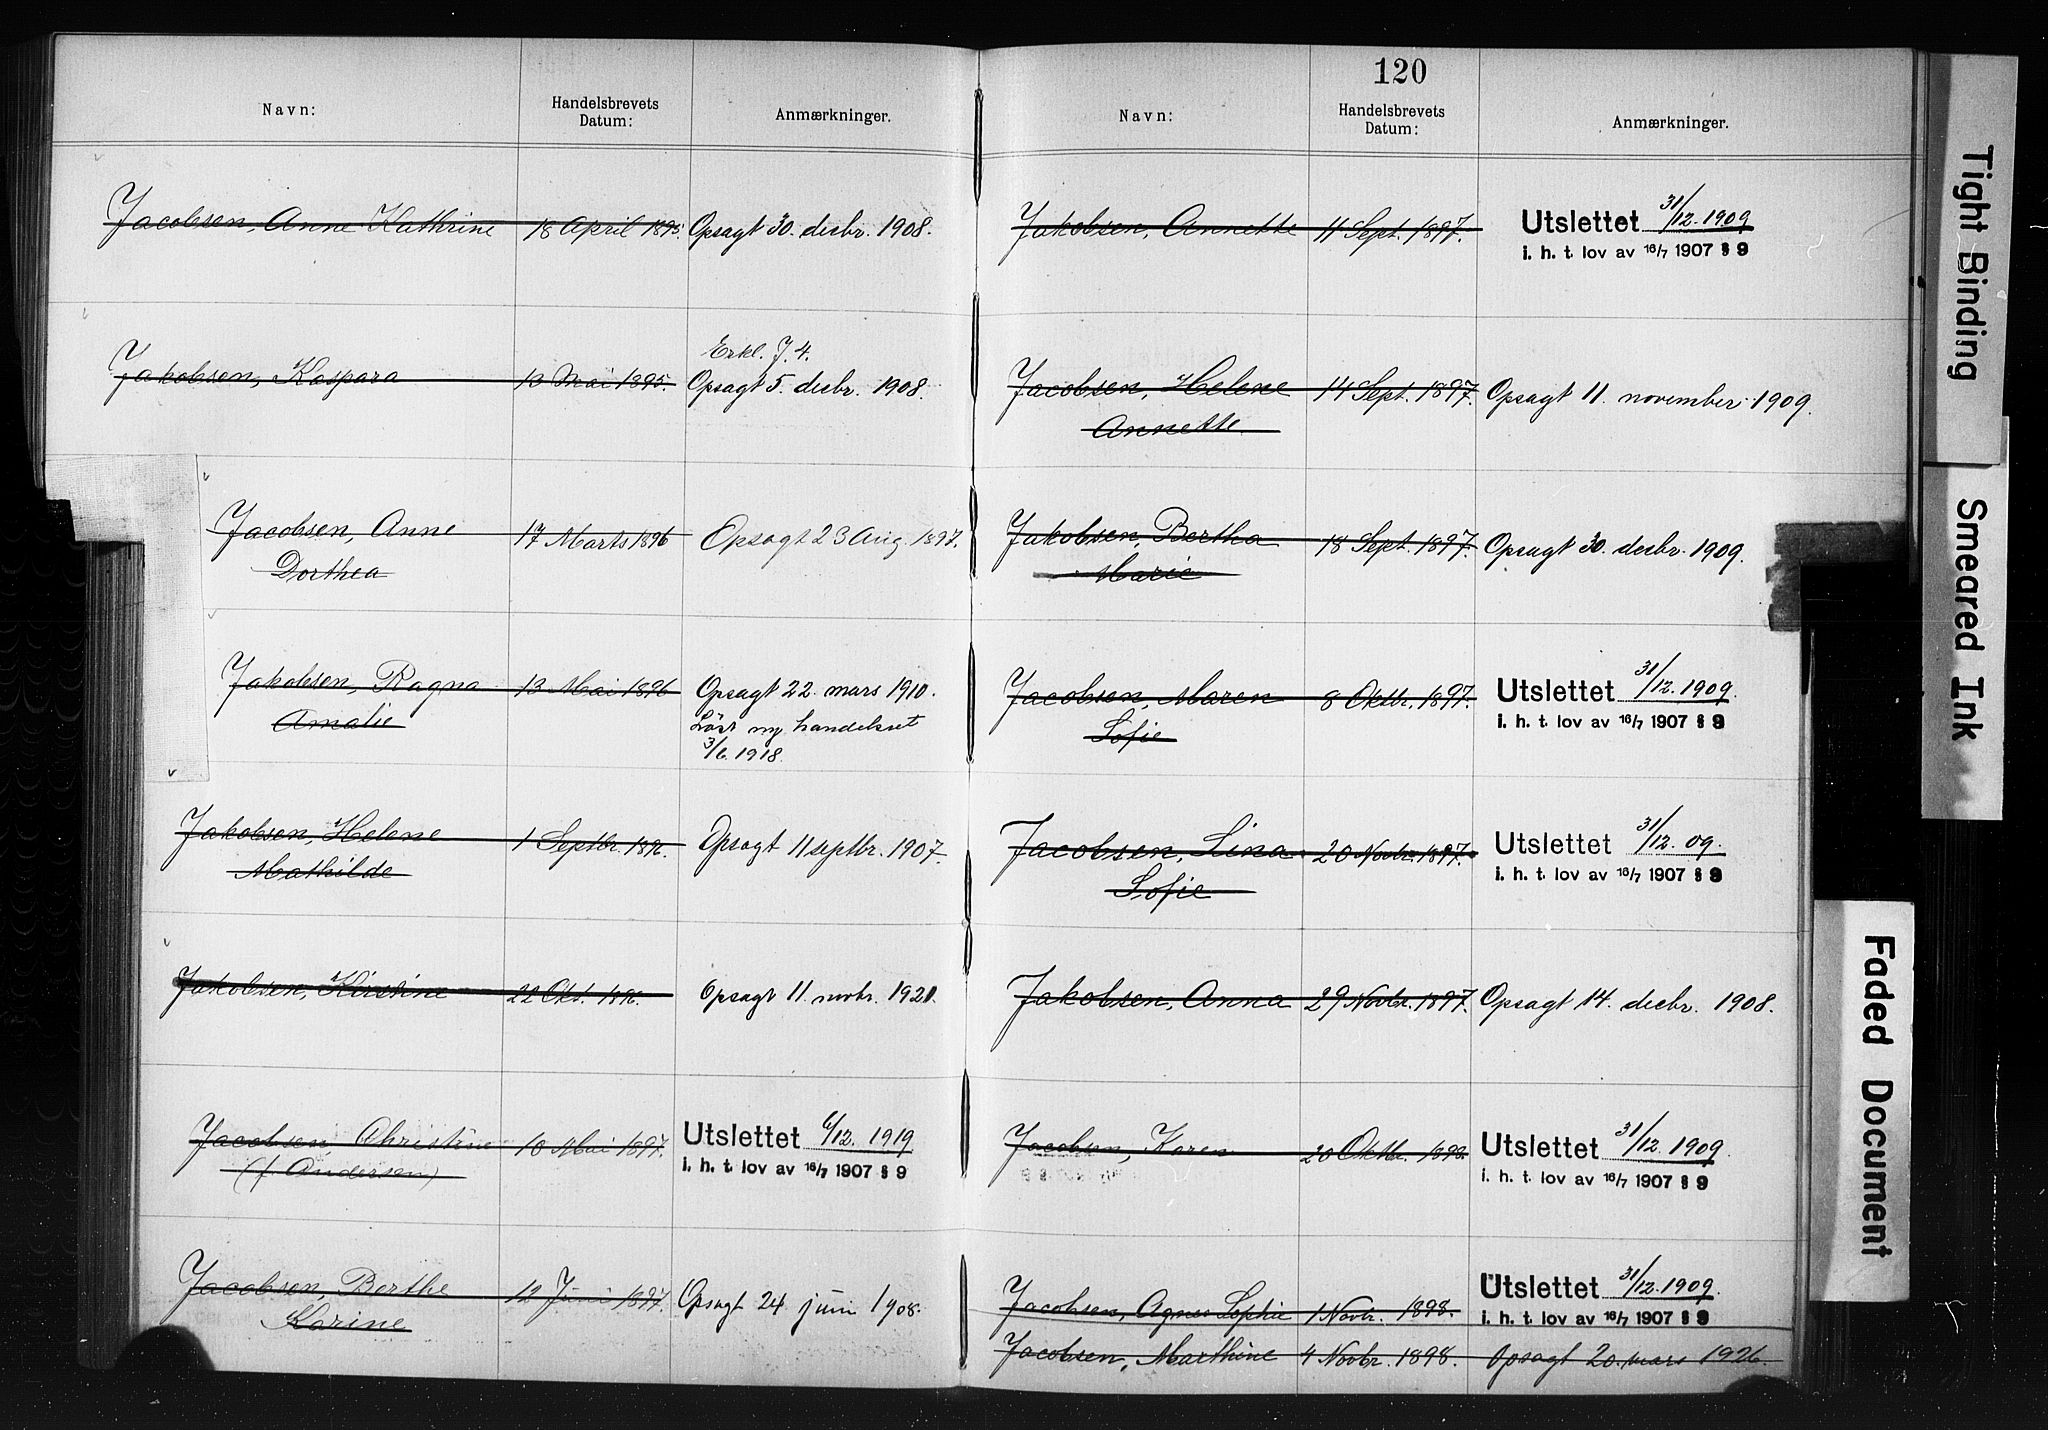 Navn:
Handelsbrevets
Datum:
Anmærkninger.
Jacobsen, Anne Kathrine 18 April 1895. Opsagt 30. decbr. 1908.
Erkl. J. 4.
Jakobsen, Kaspara 13 Mai 1895. Opsagt 5. decbr. 1908.
Jacobsen, Anne 17 Marts 1896 Opsagt 23 Aug. 1897.
Dorthea
Jakobsen, Ragna 13 Mai 1896 Opsagt 22. mars 1910.
Amalie Løst ny handelsret
3/6 1918.
Jakobsen, Helene 1 Septbr. 1896. Opsagt 11 septbr. 1907.
Mathilde
Jakobsen, Kirstine 22 Okt. 1896. Opsagt 11. novbr. 1921.
Jacobsen, Christine 10 Mai 1897. Utslettet 6/12. 1919
(f. Andersen) i. h. t. lov av 16/7 1907 § 9
Jacobsen, Berthe 12 Juni 1897. Opsagt 24 juni 1908.
Karine
120
Navn:
Handelsbrevets
Datum:
Anmærkninger.
Jakobsen, Annette 11 Sept. 1897. Utslettet 31/12. 1909
i. h. t. lov av 16/7 1907 § 9
Jacobsen, Helene 14 Sept. 1897. Opsagt 11. november 1909.
Annette
Jakobsen, Bertha 18 Sept. 1897. Opsagt 30. decbr. 1909.
Marie
Jacobsen, Maren 8 Oktbr. 1897. Utslettet 31/12. 1909.
Sofie i. h. t. lov av 16/7 1907 § 9
Jacobsen, Lina 20 Novbr. 1897. Utslettet 31/12. 09.
Sofie i. h. t. lov av 16/7 1907 § 9
Jakobsen, Anna 29 Novbr. 1897. Opsagt 14. decbr. 1908.
Jacobsen, Karen 20 Oktbr. 1898. Utslettet 31/12. 1909.
i. h. t. lov av 16/7 1907 § 9
Jacobsen, Agnes Sophie 1 Novbr. 1898. Utslettet 31/12. 1909.
i. h. t. lov av 16/7 1907 § 9
Jacobsen, Marthine 4 Novbr. 1898. Opsagt 20. mars 1926.
Tight Binding
Smeared Ink
Faded Document